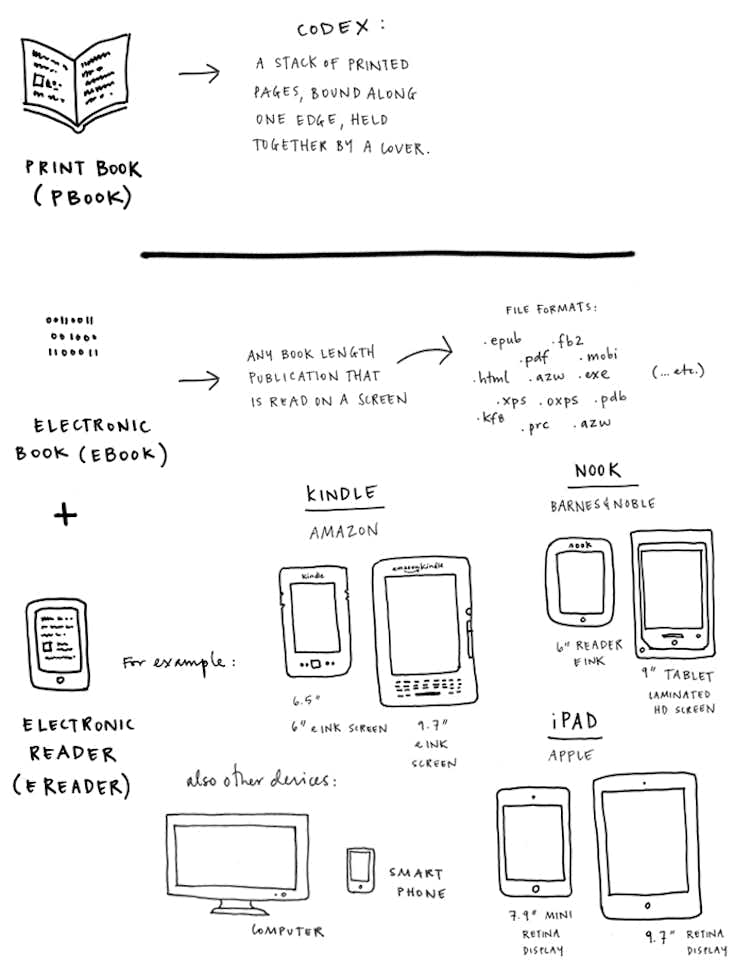 CODEX:
A STACK OF PRINTED
PAGES, BOUND ALONG
ONE EDGE, HELD
TOGETHER BY A COVER.
PRINT BOOK
(PBOOK)
00110011
001000
1100011
ELECTRONIC
BOOK (EBOOK)
ANY BOOK LENGTH
PUBLICATION THAT
IS READ ON A SCREEN
FILE FORMATS:
.epub .fb2
.pdf .mobi
.html .azw .exe
(...etc.)
.xps .oxps .pdb
.kf8 .prc .azw
+
ELECTRONIC
READER
(EREADER)
For example:
KINDLE
AMAZON
kindle
amazonkindle
6.5"
6" eINK SCREEN
9.7"
eINK
SCREEN
NOOK
BARNES & NOBLE
nook
6" READER
EINK
9" TABLET
LAMINATED
HD SCREEN
iPAD
APPLE
7.9" MINI
RETINA
DISPLAY
9.7" RETINA
DISPLAY
also other devices:
COMPUTER
SMART
PHONE